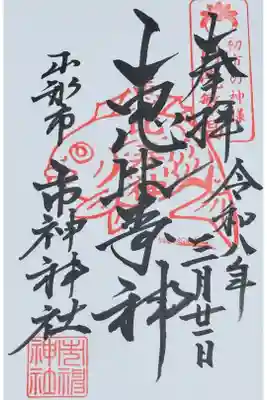 初市の神様
奉拝
令和八年
二月廿二日
恵比寿神
山形市
市神神社
市神
神社